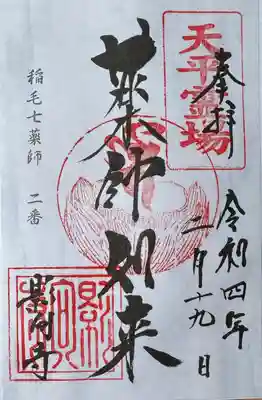 天平霊場
奉拝
令和四年
二月十九日
薬師如来
稲毛七薬師 二番
影向寺